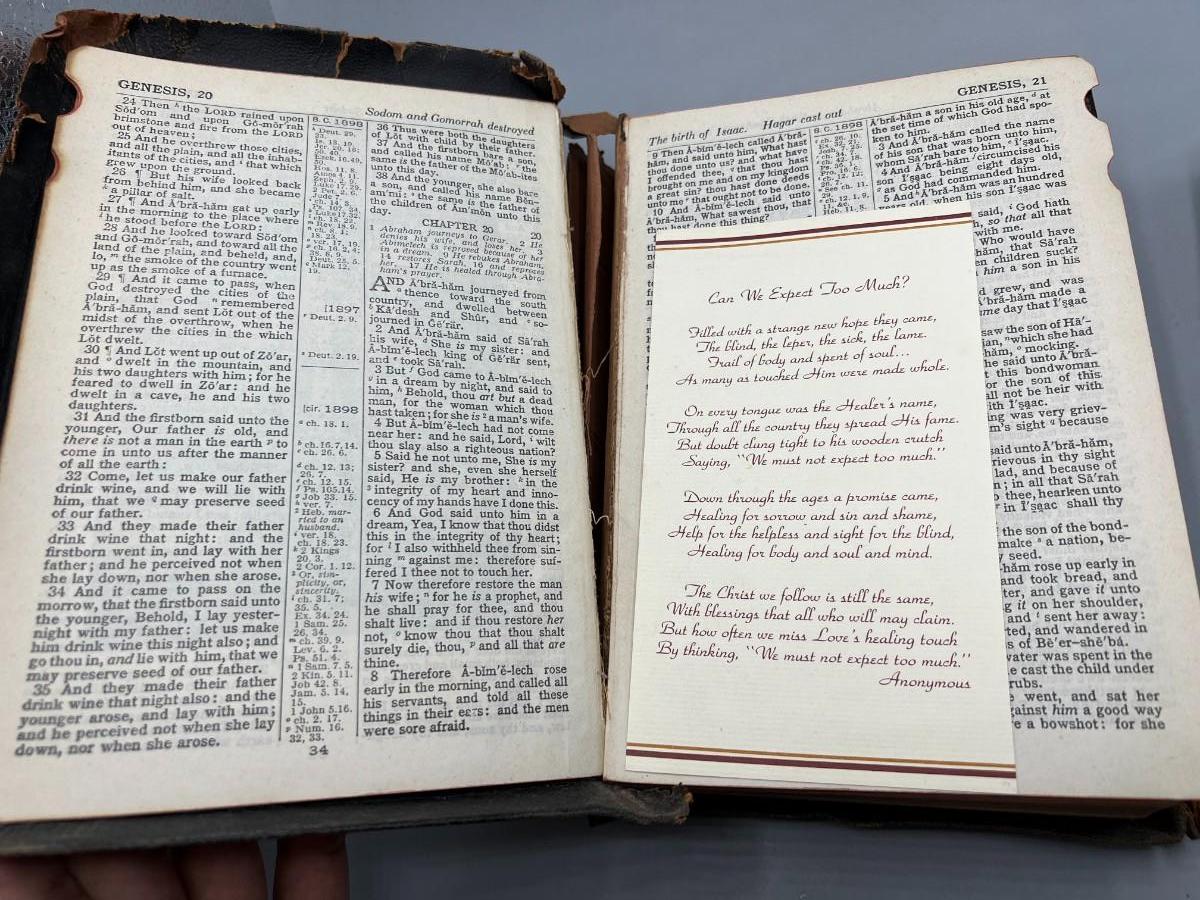 GENESIS, 20
Sodom and Gomorrah destroyed
24 Then ʰ the LORD rained upon
Sŏd′om and upon Gō-mŏr′rah
brimstone and fire from the LORD
out of heaven;
25 And he overthrew those cities,
and all the plain, and all the inhab-
itants of the cities, and ⁱ that which
grew upon the ground.
26 ¶ But his wife looked back
from behind him, and she became
ᵏ a pillar of salt.
27 ¶ And Ā′bră-hăm gat up early
in the morning to the place where
ˡ he stood before the LORD:
28 And he looked toward Sŏd′om
and Gō-mŏr′rah, and toward all the
land of the plain, and beheld, and,
lo, ᵐ the smoke of the country went
up as the smoke of a furnace.
29 ¶ And it came to pass, when
God destroyed the cities of the
plain, that God ⁿ remembered
Ā′bră-hăm, and sent Lŏt out of the
midst of the overthrow, when he
overthrew the cities in the which
Lŏt dwelt.
30 ¶ And Lŏt went up out of Zō′ar,
and ᵒ dwelt in the mountain, and
his two daughters with him; for he
feared to dwell in Zō′ar: and he
dwelt in a cave, he and his two
daughters.
31 And the firstborn said unto the
younger, Our father is old, and
there is not a man in the earth ᵖ to
come in unto us after the manner
of all the earth:
32 Come, let us make our father
drink wine, and we will lie with
him, that we ᵠ may preserve seed
of our father.
33 And they made their father
drink wine that night: and the
firstborn went in, and lay with her
father; and he perceived not when
she lay down, nor when she arose.
34 And it came to pass on the
morrow, that the firstborn said unto
the younger, Behold, I lay yester-
night with my father: let us make
him drink wine this night also; and
go thou in, and lie with him, that we
may preserve seed of our father.
35 And they made their father
drink wine that night also: and the
younger arose, and lay with him;
and he perceived not when she lay
down, nor when she arose.
B. C. 1898
[1897
Deut. 2. 9.
Deut. 2. 19.
[cir. 1898
ch. 18. 1.
ch. 16.7,14.
ch. 26. 6.
ch. 12. 13;
26. 7.
ch. 12. 15.
Ps. 105.14.
Job 33. 15.
ver. 7.
Heb. mar-
ried to an
husband.
ver. 18.
ch. 18. 23.
2 Kings
20. 3.
2 Cor. 1. 12.
Or, sim-
plicity, or,
sincerity.
ch. 31. 7;
35. 5.
Ex. 34. 24.
1 Sam. 25.
26, 34.
ch. 39. 9.
Lev. 6. 2.
Ps. 51. 4.
1 Sam. 7. 5.
2 Kin. 5. 11.
Job 42. 8.
Jam. 5. 14,
15.
1 John 5.16.
ch. 2. 17.
Num. 16.
32, 33.
34
36 Thus were both the daughters
of Lŏt with child by their father.
37 And the firstborn bare a son,
and called his name Mō′ab: the
same is the father of the Mō′ab-ites
unto this day.
38 And the younger, she also bare
a son, and called his name Bĕn-
ăm′mī: the same is the father of
the children of Ăm′mŏn unto this
day.
CHAPTER 20
20
1 Abraham journeys to Gerar, 2 He
denies his wife, and loses her. 3
Abimelech is reproved because of her
in a dream. 9 He rebukes Abraham,
14 restores Sarah, 16 and reproves
her. 17 He is healed through Abra-
ham's prayer.
AND Ā′bră-hăm journeyed from
ᵃ thence toward the south
country, and dwelled between
ᵇ Kā′desh and Shûr, and ᶜ so-
journed in Gē′rär.
2 And Ā′bră-hăm said of Sā′rah
his wife, ᵈ She is my sister: and
Ă-bĭm′ĕ-lech king of Gē′rär sent,
and ᵉ took Sā′rah.
3 But ᶠ God came to Ă-bĭm′ĕ-lech
ᵍ in a dream by night, and said to
him, ʰ Behold, thou art but a dead
man, for the woman which thou
hast taken; for she is ² a man's wife.
4 But Ă-bĭm′ĕ-lech had not come
near her: and he said, Lord, ⁱ wilt
thou slay also a righteous nation?
5 Said he not unto me, She is my
sister? and she, even she herself
said, He is my brother: ᵏ in the
³ integrity of my heart and inno-
cency of my hands have I done this.
6 And God said unto him in a
dream, Yea, I know that thou didst
this in the integrity of thy heart;
for ˡ I also withheld thee from sin-
ning ᵐ against me: therefore suf-
fered I thee not to touch her.
7 Now therefore restore the man
his wife; ⁿ for he is a prophet, and
he shall pray for thee, and thou
shalt live: and if thou restore her
not, ᵒ know thou that thou shalt
surely die, thou, ᵖ and all that are
thine.
8 Therefore Ă-bĭm′ĕ-lech rose
early in the morning, and called all
his servants, and told all these
things in their ears: and the men
were sore afraid.
GENESIS, 21
The birth of Isaac. Hagar cast out
9 Then Ă-bĭm′ĕ-lech called Ā′bră-
hăm, and said unto him, What hast
thou done unto us? and what have
I offended thee, that thou hast
brought on me and on my kingdom
a great sin? thou hast done deeds
that ought not to be done.
10 And Ă-bĭm′ĕ-lech said unto
Ā′bră-hăm, What sawest thou, that
thou hast done this thing?
B. C. 1898
Ā′bră-hăm a son in his old age, ᵈ at
the set time of which God had spo-
ken to him.
3 And Ā′bră-hăm called the name
of his son that was born unto him,
whom Sā′rah bare to him, ᵉ I′ṣaac.
4 And Ā′bră-hăm circumcised his
son I′ṣaac being eight days old,
as God had commanded him.
5 And Ā′bră-hăm was an hundred
years old, when his son I′ṣaac was
said, God hath
so that all that
with me.
Who would have
that Sā′rah
en children suck?
him a son in his
grew, and was
hăm made a
me day that I′ṣaac
saw the son of Hā′-
an, which she had
hăm, mocking.
he said unto Ā′bră-
this bondwoman
or the son of this
all not be heir with
ith I′ṣaac.
ng was very griev-
m's sight because
said unto Ā′bră-hăm,
rievous in thy sight
lad, and because of
n; in all that Sā′rah
thee, hearken unto
r in I′ṣaac shall thy
the son of the bond-
make a nation, be-
y seed.
hăm rose up early in
and took bread, and
ter, and gave it unto
g it on her shoulder,
and sent her away:
ted, and wandered in
s of Bē′er–shē′bà.
vater was spent in the
e cast the child under
rubs.
went, and sat her
gainst him a good way
e a bowshot: for she
Can We Expect Too Much?
Filled with a strange new hope they came,
The blind, the leper, the sick, the lame.
Frail of body and spent of soul...
As many as touched Him were made whole.
On every tongue was the Healer's name,
Through all the country they spread His fame.
But doubt clung tight to his wooden crutch
Saying, "We must not expect too much."
Down through the ages a promise came,
Healing for sorrow and sin and shame,
Help for the helpless and sight for the blind,
Healing for body and soul and mind.
The Christ we follow is still the same,
With blessings that all who will may claim.
But how often we miss Love's healing touch
By thinking, "We must not expect too much."
Anonymous